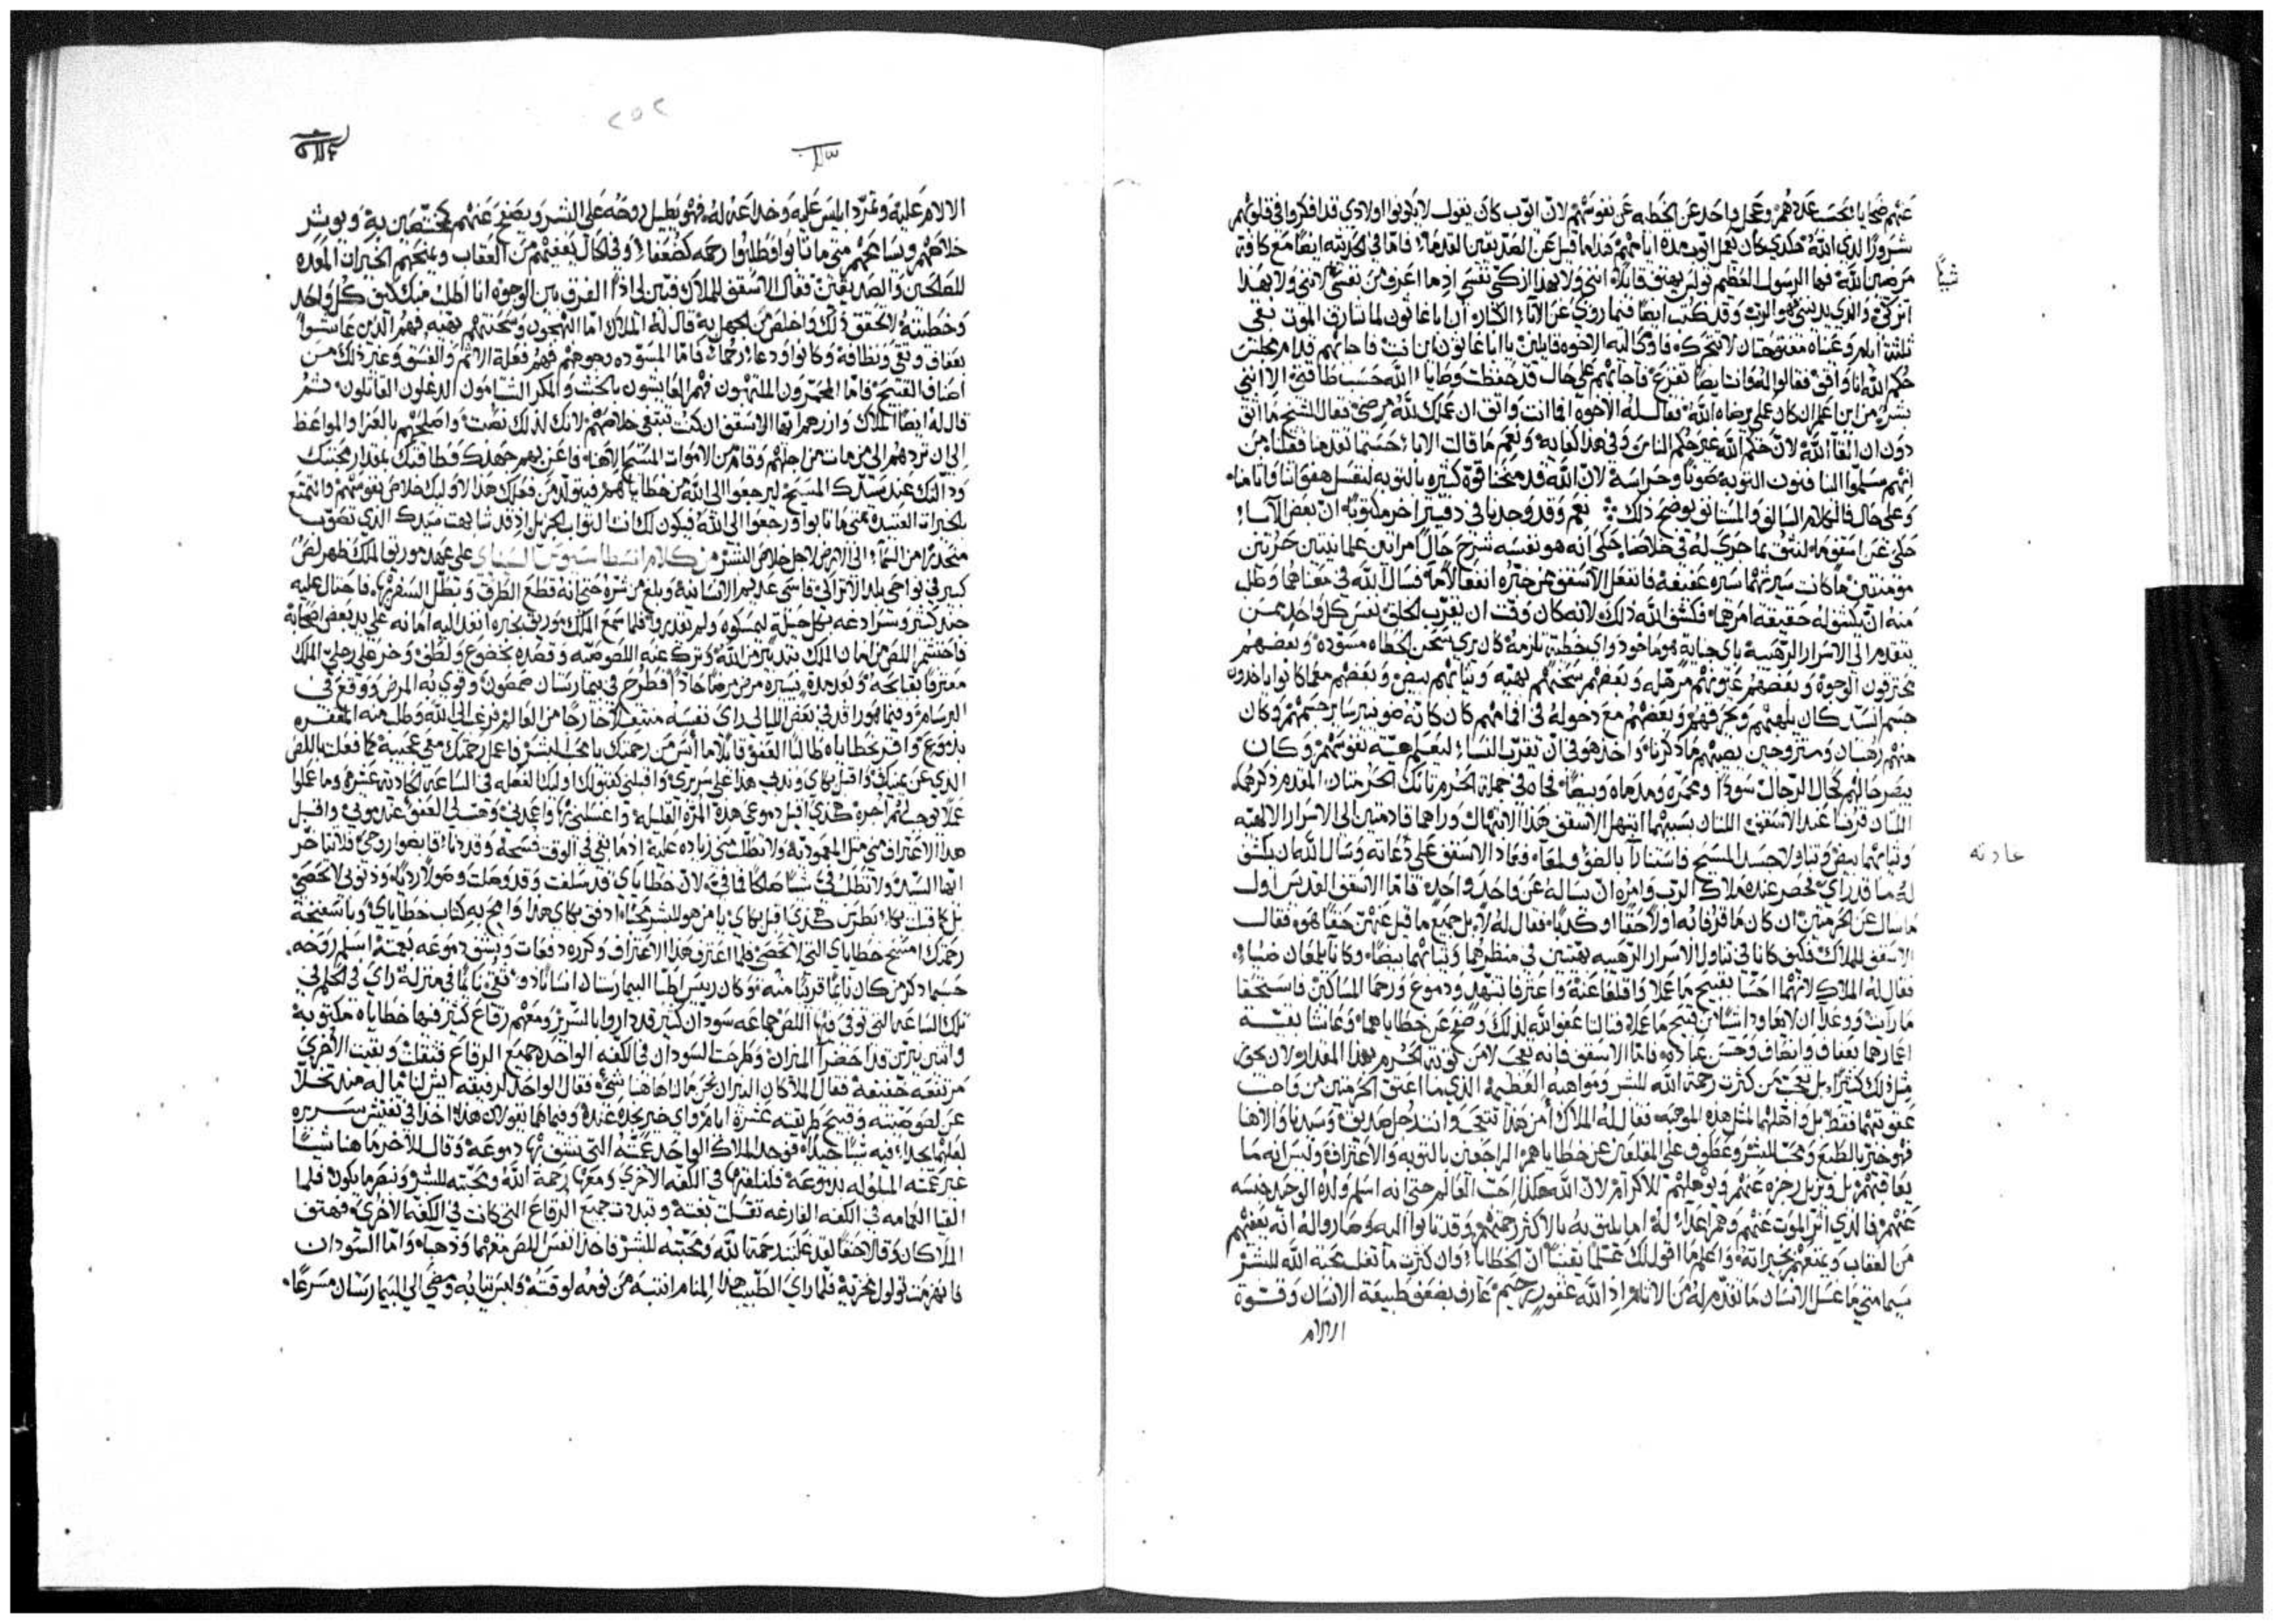 عنهم ضحايا بحسب عددهم وعجل واحد عن الخطيه عن نفوسهم لان ايوب كان يقول لا يكونوا اولادي قد افكروا في قلوبهم
شرورًا لدي الله هكدي كان يعمل ايوب مدة ايامهم هدا ما قيل عن الصديقين القدما فاما في الحديثه ايضًا مع كافة
مرضيين الله فها الرسول العظيم بولس يهتف قايلًا انني ولا بهدا ازكي نفسي اد ما اعرف من نفسي لانني ولا بهدا
اتزكي والدي يدينني فهو الرب وقد كتب ايضًا فيما روي عن الابا الكبار ان اباغاثون لما شارف الموت بقي
ثلثة ايام وعيناه مفتوحتان لا تتحركه فادكي اليه الاخوه قايلين يا اباغاثون اين انت فاجابهم قدام مجلس
حكم الله انا واقف فقالوا له وانت ايضًا تفزع فاجابهم علي حال قد حفظت وصايا الله حسب طاقتي الا انني
بشر من اين اعلم ان كان عملي يرضاه الله فقال له الاخوه افما انت واثق ان عملك لله مرضي فقال الشيخ ما اثق
دون ان القا الله لان حكم الله غير حكم الناس وفي هدا كفايه ونعم ما قالت الابا حسبما تقدمنا فقلنا من
انهم سلموا الينا فنون التوبه صونًا وحراسة لان الله قد منحنا قوة كثيره بالتوبه لنغسل هفواتنا واثامنا
وعلي حال فالكلام السالف والمستانف يوضح دلك نعم وقد وجدنا في دفتر اخر مكتوبًا ان بعض الابا
حكي عن اسقف ما لنثق بما جري له في خلاصنا حكي انه هو نفسه شرح حال امراتين علمانيتين حرتين
مومنتين ما كانت سيرتهما سيره عفيفة فانفعل الاسقف من خبره انفعالًا ما فسال الله في معناهما وطلب
منه ان يكشف له حقيقة امرهما فكشف الله دلك لانه كان وقت ان يقرب الخلق نفس كل واحد ممن
يتقدم الي الاسرار الرهبية باي جناية هو ماخود واي خطية تلزمه كان يري سحن الخطاه مسوده وبعضهم
محترقون الوجوه وبعضهم عيونهم مرهله وبعضهم سحنتهم بهية وثيابهم بيض وبعضهم معما كانوا ياخدون
جسم السيد كان يلهبهم ويحرقهم وبعضهم مع دخوله في افامهم كان كانه ضو ينير ساير جسمهم وكان
منهم رهبان ومتزوجين يصيبهم ما دكرنا واخد هو في ان يقرب النسا ليعلم هيه نفوسهم وكان
يبصر حالهم كحال الرجال سودًا ومحمره ومدماه وبيضًا فجاه في جملة الحرم تانك الحرمتان المقدم دكرهما
اللتان قرفتا عند الاسقف اللتان بسببهما ابتهل الاسقف هدا الانتهال وراهما قادمتين الي الاسرار الالهيه
وثيابهما بيض وتناولا جسد المسيح فاستنارا بالضو ولمعا فعاد الاسقف علي دعاته وسال الله ان يكشف
له ما قد راي فحضر عنده ملاك الرب وامره ان يساله عن واحد واحد فاما الاسقف القديس اول
ما سال عن الحرمتين ان كان ما قرفا به اولًا حقًا او كدبًا فقال له لا بل جميع ما قيل عنهن حقًا هو فقال
الاسقف للملاك فكيف كانا في تناول الاسرار الرهيبه بهيتين في منظرهما وثيابهما بيضًا وكانا يلمعان ضياء
فقال له الملاك لانهما احسا بقبيح ما عملا واقلعا عنه واعترفا بتنهد ودموع ورحما المساكين فاستحقا
ما رايت ووعدا ان لا يعاودا شيئًا من قبيح ما عملا فنالتا عفو الله لدلك وصفح عن خطاياهما وعاشا بقية
اعمارهما بعفاف وانصاف وحسن عباده فاما الاسقف فانه تعجب لا من توبة الحرم بهدا المقدار لان جري
مثل دلك كثيرًا بل تعجب من كثرت رحمة الله للبشر ومواهبه العظيمه الدي ما اعتق الحرمتين من واجب
عقوبتهما فقط بل واهلهما لمثل هده الموهبه فقال له الملاك امن هدا تتعجب وانت رجل صديق وسيدنا والاهنا
فهو خير بالطبع ومحب للبشر وعطوف علي المقلعين عن خطاياهم الراجعين بالتوبه والاعتراف وليس انه ما
يعاقبهم بل ويزيل رجزه عنهم ويوهلهم للاكرام لان الله هكدا احب العالم حتي انه اسلم ولده الوحيد جنسه
عنهم فالدي اثر الموت عنهم وهم اعداء له اما يليق به بالاكثر رحمتهم وقد تابوا اليه وصاروا له انه يعفيهم
من العقاب ويمتعهم بخيراته واعلم ما اقول لك عيلما يقينًا ان الخطايا وان كثرت ما تغلب محبة الله للبشر
سيما متي ما غسل الانسان ما تقدم له من الاثام اد الله غفور رحيم عارف بضعف طبيعة الانسان وقوة
الالام
شيئًا
عادته
٢٥٢
الالام عليه وتمرد ابليس عليه وخداعه له فهو يطيل روحه علي البشر ويصفح عنهم كمختصين به ويوثر
خلاصهم ويسامحهم متي ما تابوا وطلبوا رحمه كضعفا وفي الحال يعفيهم من العقاب ويمنحهم الخيرات المعده
للصالحين والصديقين فقال الاسقف للملاك فبين لي ادًا الفرق بين الوجوه انا اطلب منك كيف كل واحد
وخطيته لاتحقق دلك واخلص من الجهل به قال له الملاك اما البهجون وسحنتهم بهيه فهم الدين عاشوا
بعفاف وتقي ونظافة وكانوا ودعا رحما فاما المسوده وجوههم فهم فعلة الاثم والفسق وغير دلك من
اصناف القبيح فاما المحمرون الملتهبون فهم العايشون بالخبث والمكر الشتامون الدغلون القاتلون ثم
قال له ايضًا الملاك وازرهم ايها الاسقف ان كنت تبتغي خلاصهم لانك لدلك نصبت واصلحهم بالعزا والمواعظ
الي ان تردهم الي من مات من اجلهم وقام من الاموات المسيح الاهنا فاعن بهم جهدك وطاقتك بمقدار محبتك
ودالتك عند سيدك المسيح ليرجعوا الي الله من خطاياهم فيتولد من فعلك هدا لاوليك خلاص نفوسهم والتمتع
بالخيرات العتيده متي ما تابوا ورجعوا الي الله فيكون لك انت الثواب الجزيل اد قد شابهت سيدك الدي تصوب
منحدرًا من السماء الي الارض لاجل خلاص البشر من كلام انسطاسيوس السيناي علي عهد موريق الملك ظهر لص
كبير في نواحي بلد الاتراكي قاسي عديم الانسانية وبلغ من شره حتي انه قطع الطرق وبطل السفر بها فاحتال عليه
جند كثير وشرادعه بكل حيلة ليمسكوه ولم يقدروا فلما سمع الملك موريق بخبره انفد اليه امانه علي يد بعض اصحابه
فاحتشم اللص من امان الملك بتدبير من الله وترك عنه اللصوصيه وقصده بخضوع ولطف وخر علي رجلي الملك
معترفًا بقبايحه وبعد مدة يسيره مرض مرضًا حادًا فطرح في بيمارستان صمصون وقوي به المرض ووقع في
البرسام وفيما هو راقد في بعض الليالي راي نفسه منتقلًا خارجًا من العالم فرغب الي الله وطلب منه المغفره
بدموع واقر بخطاياه طالبًا العفو قايلًا ما اُيس من رحمتك يا محب البشر فاعمل رحمتك معي عجيبة كما فعلت باللص
الدي عن يمينك واقبل بكاي وندبي هدا علي سريري واقبلني كقبولك اوليك الفعله في الساعه الحاديه عشره وما عملوا
عملًا توجب لهم اجره هكدي اقبل دموعي هده المره القليله واغسلني بها واعمدني وهب لي العفو عند موتي واقبل
هدا الاعتراف مني مثل المعموديه ولا تطلب مني زياده علية اد ما بقي في الوقت فسحه وقد دنا قابضوا روحي فلا تتاخر
ايها السيد ولا تطلب في شيًا صالحًا فما فيّ لان خطاياي قد سلفت وقد وصلت وهولا رديًا ودنوبي لا تحصي
بل كما قبلت بكاء بطرس هكدي اقبل بكاي يا من هو للبشر محبًا ادفق بكاي هدا وامح به كتاب خطاياي وباسفنجة
رحمتك امسح خطاياي التي لا تحصي فلما اعترف هدا الاعتراف وكرره دفعات وينشف دموعه بعمته اسلم روحه
حسبما دكر من كان نايمًا قريبًا منه وكان ريس اطبا البيمارستان انسانًا دو تقي نايمًا في منزله راي في الحلم في
تلك الساعه التي توفي فيها اللص جماعه سودان كثير قد داروا بالسرير ومعهم رقاع كثير فيها خطاياه مكتوبة
واثنين نيرين قد احضرا الميزان وطرحت السودان في الكفه الواحده جميع الرقاع فثقلت وبقيت الاخري
مرتفعه خفيفه فقال الملاكان النيران نحن ما لنا هاهنا شيء فقال الواحد لرفيقه ايش لنا نما له مند تخلا
عن لصوصيته وقبيح طريقته عشرة ايام واي خير نجده عنده وفيما هما يقولان هدا اخدا في تفتيش سريره
لعلهما يجدا فيه شيئًا جيدًا فوجد الملاك الواحد عمته التي نشف بها دموعه وقال للاخر ما هنا شيئًا
غير عمته المبلوله بدموعه فلنلقها في الكفه الاخري ومعها رحمة الله ومحبته للبشر وننظر ما يكون فلما
القيا العمامه في الكفه الفارغه ثقلت بغته وتبددت جميع الرقاع التي كانت في الكفه الاخري فهتف
الملاكان وقالا حقًا لقد غلبت رحمة الله ومحبته للبشر فاخدا نفس اللص معهما ودهبا واما السودان
فانهزمت تولول بخزية فلما راي الطبيب هدا المنام انتبه من نومه لوقته ولبس ثيابه ومضي الي البيمارستان مسرعًا